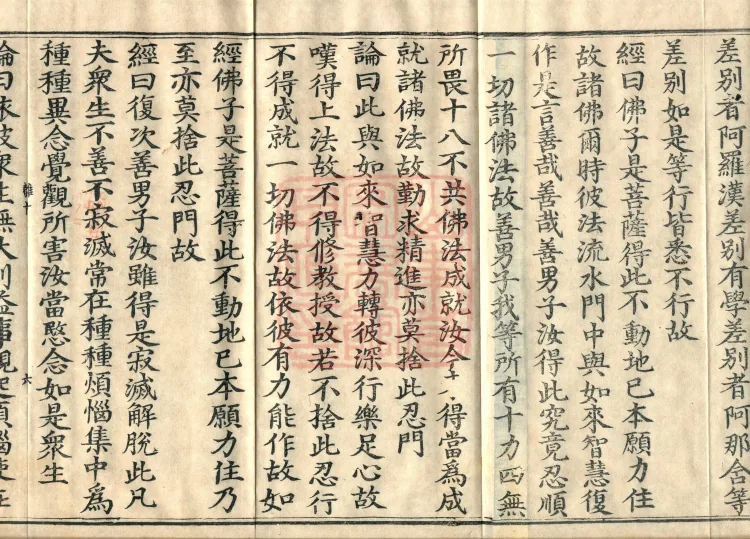 差別者阿羅漢差別有學差別者阿那含等
差別如是等行皆悉不行故
經曰佛子是菩薩得此不動地已本願力住
故諸佛爾時彼法流水門中與如來智慧復
作是言善哉善哉善男子汝得此究竟忍順
一切諸佛法故善男子我等所有十力四無
所畏十八不共佛法成就汝今得當為成
就諸佛法故勤求精進亦莫捨此忍門
論曰此與如來智慧力轉彼深行樂足心故
嘆得上法故不得修教授故若不捨此忍行
不得成就一切佛法故依彼有力能作故如
經佛子是菩薩得此不動地已本願力住乃
至亦莫捨此忍門故
經曰復次善男子汝雖得是寂滅解脫此凡
夫衆生不善不寂滅常在種種煩惱集中為
種種異念覺觀所害汝當愍念如是衆生
六
論曰依彼衆生無大利益事觀起煩惱使在